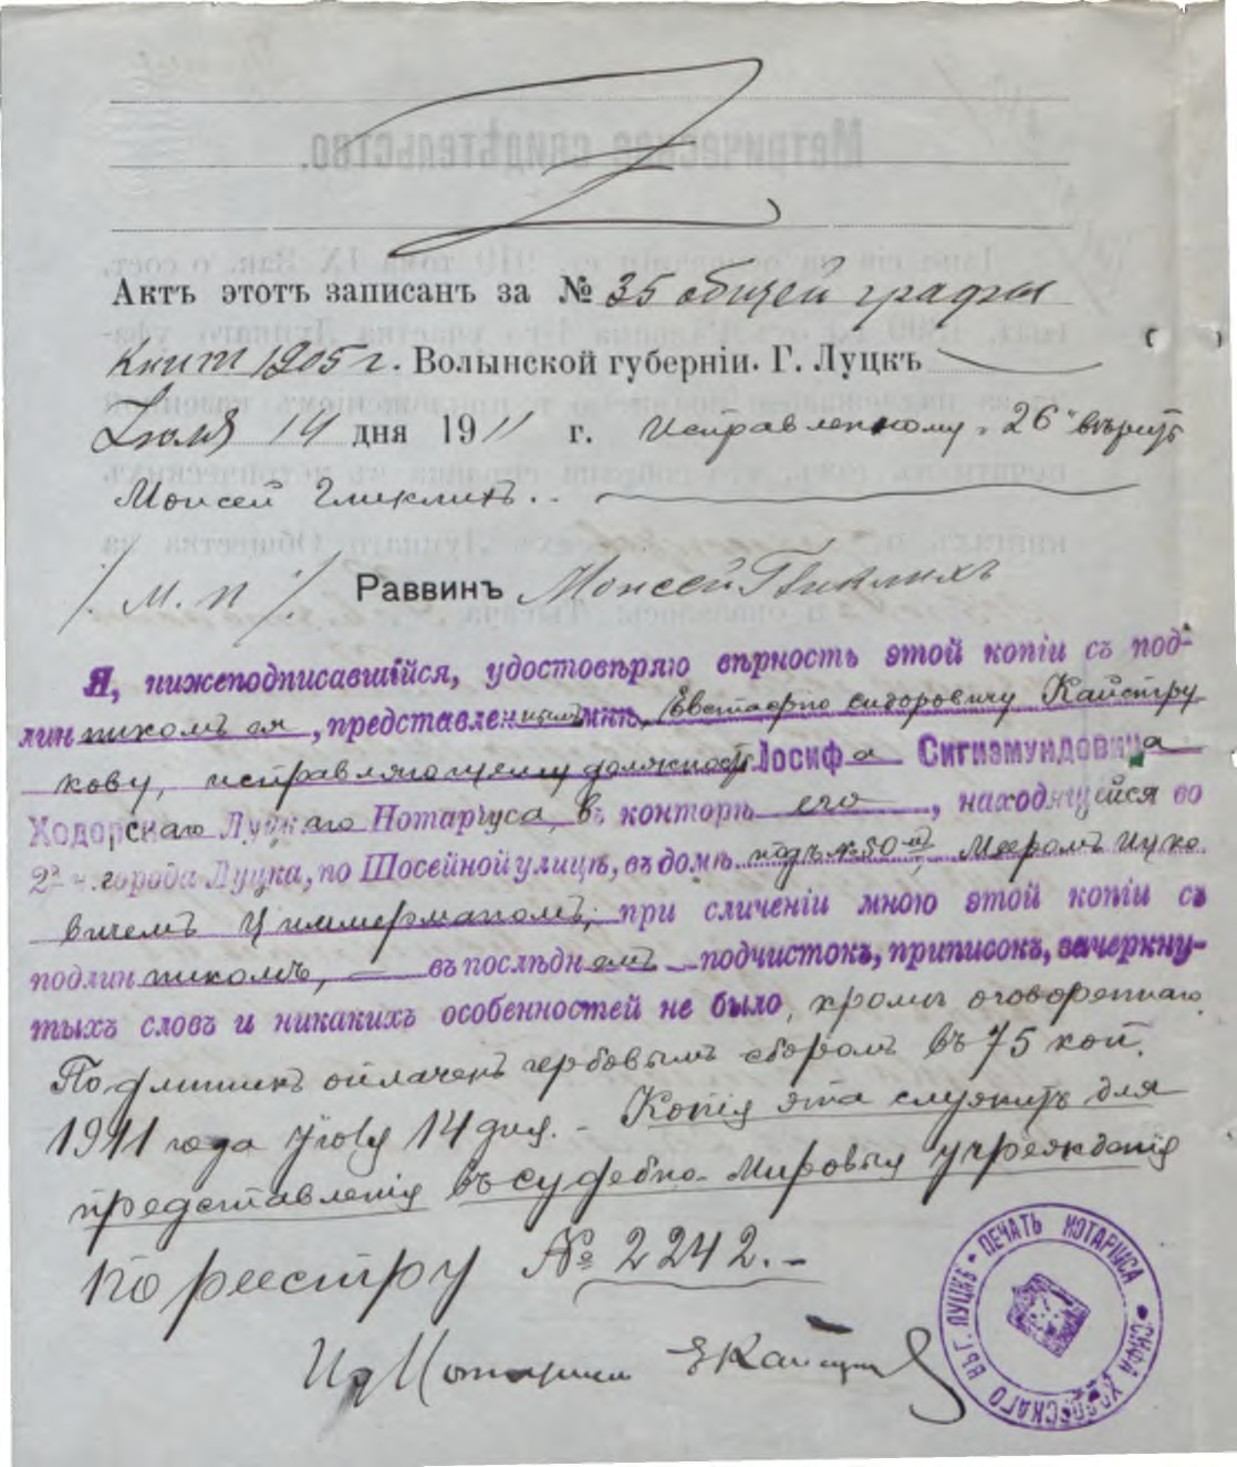 Актъ этотъ записанъ за № 35 общей графы
книги 1905 г. Волынской губерніи. Г. Луцкъ
Іюля 14 дня 1911 г. Исправленному „26“ вѣрить
Моисей Гликлихъ..
/. М. П ./ Раввинъ Моисей Гликлихъ
Я, нижеподписавшійся, удостовѣряю вѣрность этой копіи съ под-
линникомъ ея, представленнымъ мнѣ, Евстафію Сидоровичу Кайстру
кову, исправляющему должность Іосифа Сигизмундовича
Ходорскаго Луцкаго Нотаріуса, въ конторѣ его, находящейся во
2 ч. города Луцка, по Шосейной улицѣ, въ домѣ подъ № 50-й, Мееромъ Ицко
вичемъ Циммерманомъ; при сличеніи мною этой копіи съ
подлинникомъ, — въ послѣднемъ подчистокъ, приписокъ, зачеркну-
тыхъ словъ и никакихъ особенностей не было, кромѣ оговореннаго.
Подлинникъ оплаченъ гербовымъ сборомъ въ 75 коп.
1911 года Іюля 14 дня. - Копія эта служитъ для
представленія въ судебно-мировыя учрежденія
по реестру № 2242.-
Ид Нотаріуса
ПЕЧАТЬ НОТАРІУСА ВЪ Г. ЛУЦКѢ